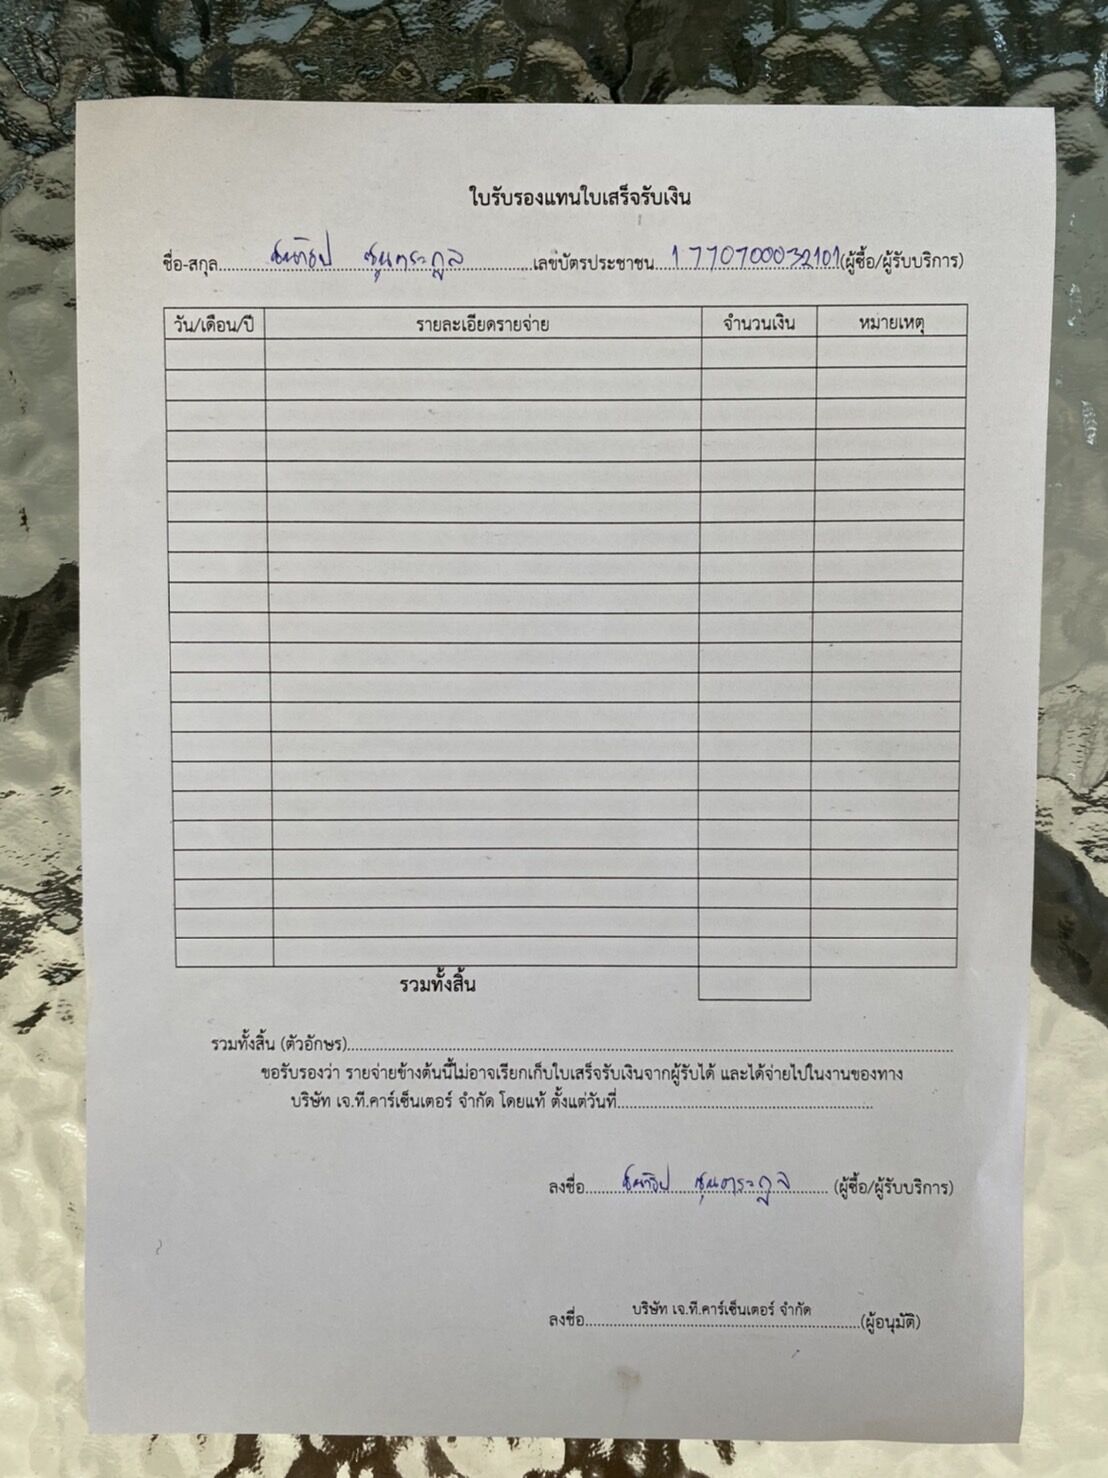 ใบรับรองแทนใบเสร็จรับเงิน
ชื่อ-สกุล..........ชนาธิป ชุนตระกูล..........เลขบัตรประชาชน...1770700032101(ผู้ซื้อ/ผู้รับบริการ)
วัน/เดือน/ปี รายละเอียดรายจ่าย จำนวนเงิน หมายเหตุ
รวมทั้งสิ้น
รวมทั้งสิ้น (ตัวอักษร)....................
ขอรับรองว่า รายจ่ายข้างต้นนี้ไม่อาจเรียกเก็บใบเสร็จรับเงินจากผู้รับได้ และได้จ่ายไปในงานของทาง
บริษัท เจ.ที.คาร์เซ็นเตอร์ จำกัด โดยแท้ ตั้งแต่วันที่....................
ลงชื่อ..........ชนาธิป ชุนตระกูล.......... (ผู้ซื้อ/ผู้รับบริการ)
บริษัท เจ.ที.คาร์เซ็นเตอร์ จำกัด
ลงชื่อ....................(ผู้อนุมัติ)